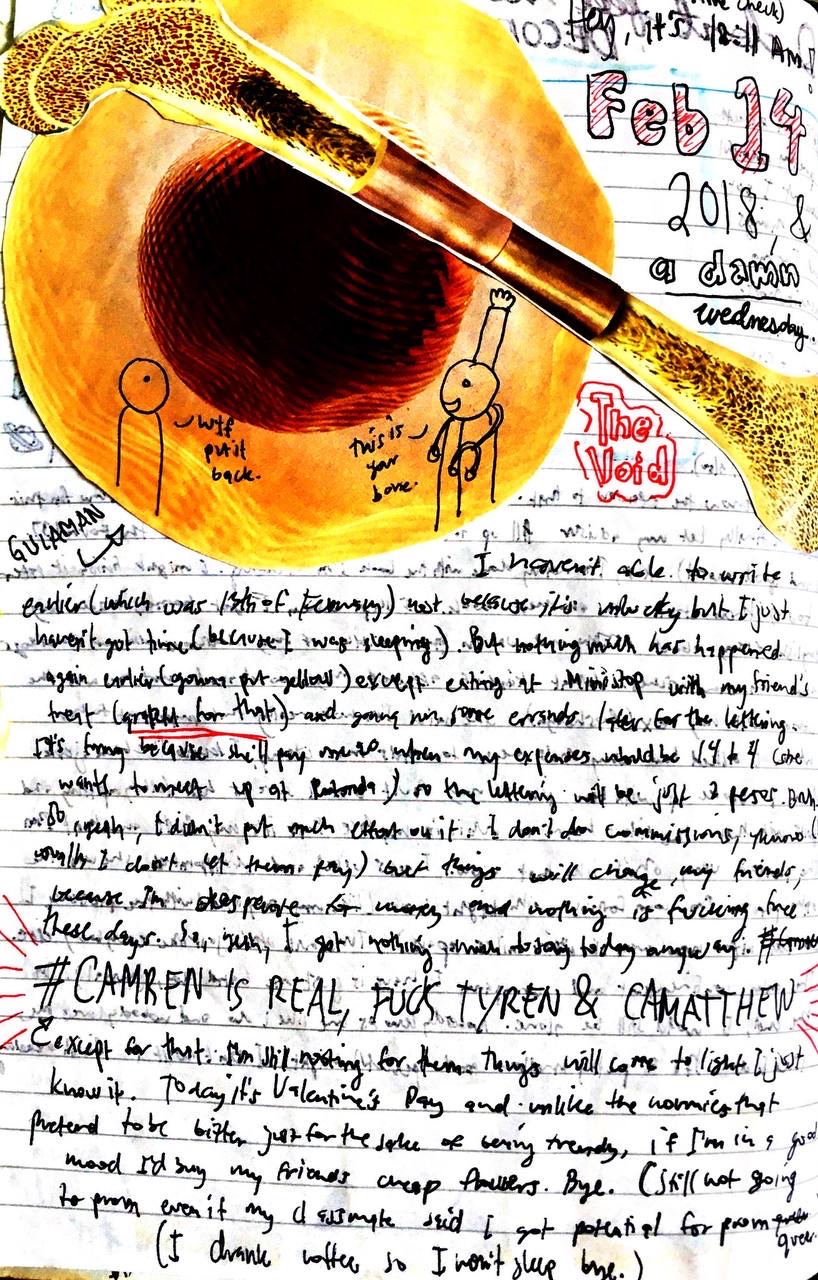 (time check)
Hey, it's 12:11 AM!
Feb 14
2018, &
a damn
wednesday.
The
Void
wtf
put it
back.
this is
your
bone.
GULAMAN
I haven't able to write
earlier (which was 13th of February) not because it's unlucky but I just
haven't got time (because I was sleeping). But nothing much has happened
again earlier (gonna put yellow) except eating at Ministop with my friend's
treat (grateful for that) and gonna run some errands later for the lettering.
It's funny because she'll pay me 20 when my expenses would be 14 + 4 (she
wants to meet up at Rotonda) so the lettering will be just 2 pesos. Bruh.
So yeah, I didn't put much effort on it. I don't do commissions, yknow (
usually I don't let them pay) but things will change, my friends,
because I'm desperate for money and nothing is fucking free
these days. So, yeah, I got nothing much to say today anyway.
#CAMREN IS REAL, FUCK TYREN & CAMATTHEW
except for that. I'm still rooting for them. Things will come to light I just
know it. Today it's Valentine's Day and unlike the normies that
pretend to be bitter just for the sake of being trendy, if I'm in a good
mood I'd buy my friends cheap flowers. Bye. (Still not going
to prom even if my classmate said I got potential for prom
queen.
(I drank coffee so I won't sleep bye.)